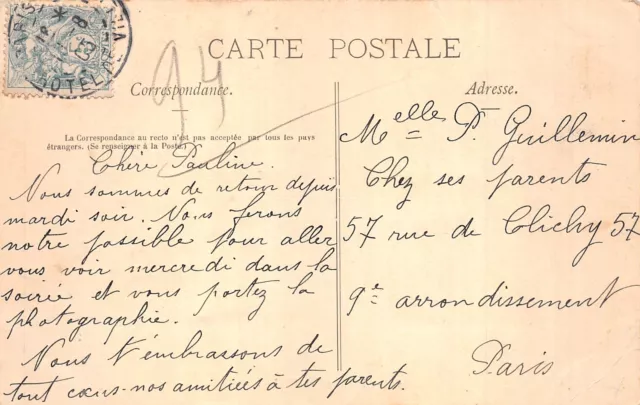 CARTE POSTALE
94
Correspondance.
La Correspondance au recto n'est pas acceptée par tous les pays
étrangers. (Se renseigner à la Poste.)
Chère Pauline.
Nous sommes de retour depuis
mardi soir. Nous ferons
notre possible pour aller
vous voir mercredi dans la
soirée et vous portez la
photographie.
Nous t'embrassons de
tout cœur - nos amitiées à tes parents.
Adresse.
Melle P. Guillemin
Chez ses parents
57 rue de Clichy 57
9e arrondissement
Paris
PARIS